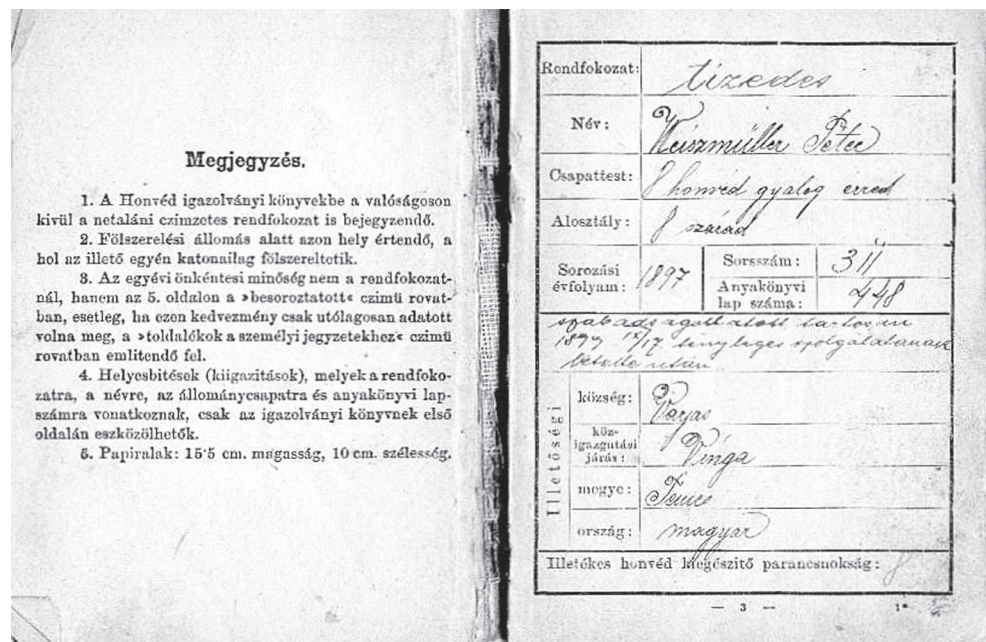 Megjegyzés.
1. A Honvéd igazolványi könyvekbe a valóságoson
kivül a netaláni czimzetes rendfokozat is bejegyzendő.
2. Fölszerelési állomás alatt azon hely értendő, a
hol az illető egyén katonailag fölszereltetik.
3. Az egyévi önkéntesi minőség nem a rendfokozat-
nál, hanem az 5. oldalon a »besoroztatott« czimü rovat-
ban, esetleg, ha ezen kedvezmény csak utólagosan adatott
volna meg, a »toldalékok a személyi jegyzetekhez« czimü
rovatban emlitendő fel.
4. Helyesbitések (kiigazitások), melyek a rendfoko-
zatra, a névre, az állománycsapatra és anyakönyvi lap-
számra vonatkoznak, csak az igazolványi könyvnek első
oldalán eszközölhetők.
5. Papiralak: 15·5 cm. magasság, 10 cm. szélesség.
Rondfokozat: tizedes
Név: Weiszmüller Péter
Csapattest: 8 honvéd gyalog ezred
Alosztály: 8 század
Sorozási
évfolyam: 1897
Sorsszám: 3 II
Anyakönyvi
lap száma: 448
szabadságoltatott tartósan
1899 12/17 tényleges szolgálatának
letelte után
Illetőségi
község: Varjas
köz-
igazgatási
járás: Vinga
megye: Temes
ország: magyar
Illetékes honvéd kiegészitő parancsnokság: 8
— 3 —
1*